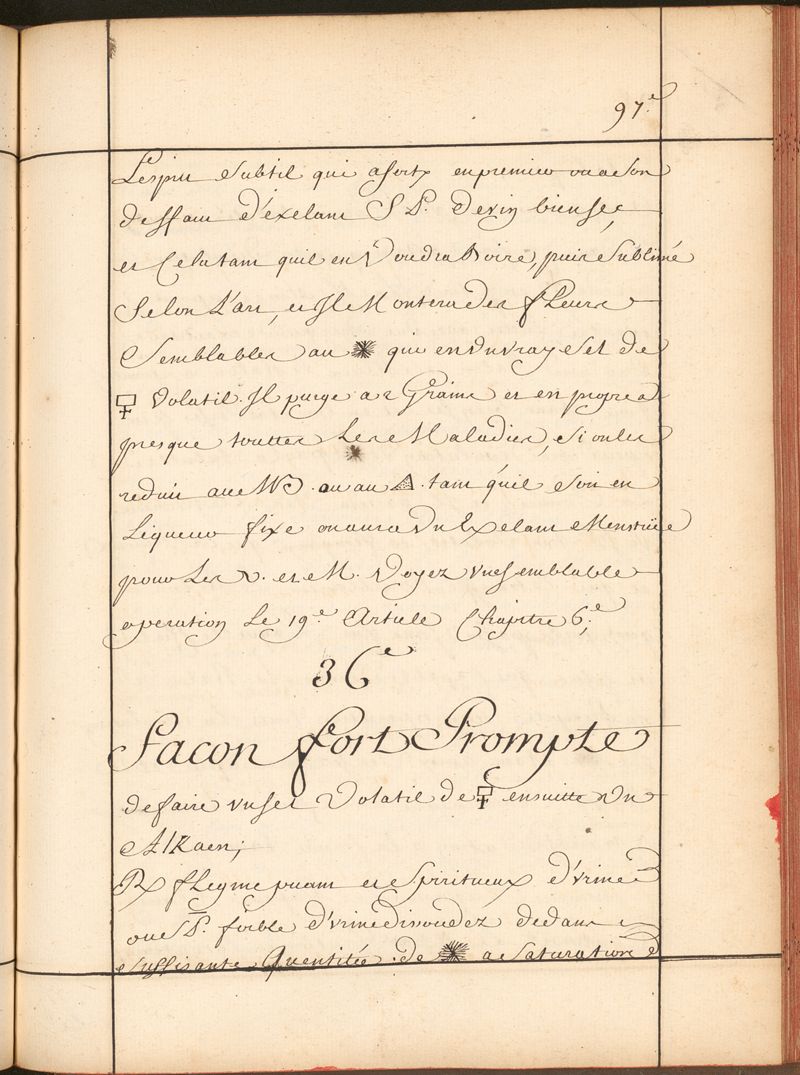 97.e
L'esprit subtil qui a sorty en premier ou a son
deffaut d'exelant S P. de vin bien sec,
et Celatant quil en Voudra boire, puis sublimé
Selon L'art, et Il Montera des fleurs
Semblables au ✴ qui en un vray sel de
🜿 Volatil. Il purge a 2 Grains et en
presque touttes Les Maladies, si on les
reduit au ou au 🜂. tant qu'il soit en
Liqueur fixe on aura Un Exelant Menstrüe
pour Les et M. Voyez une semblable
operation Le 19.e Article Chapitre 6.e;
36e
Facon fort Prompte
de faire un sel Volatil de 🜿 ensuitte Un
AlKaen;
Rx flegme puant et Spiritueux d'Urine
ou SP. foible d'Urine disoudez dedans
suffisante Quentitée de ✴ a saturation